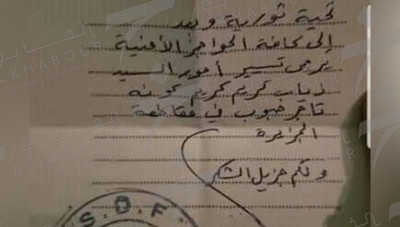 تحية ثورية وبعد
إلى كافة الحواجز الأمنية
يرجى تسيير أمور السيد
ذياب كريم كريم كونه
تاجر حبوب في مقاطعة
الجزيرة
ولكم جزيل الشكر
S.D.F